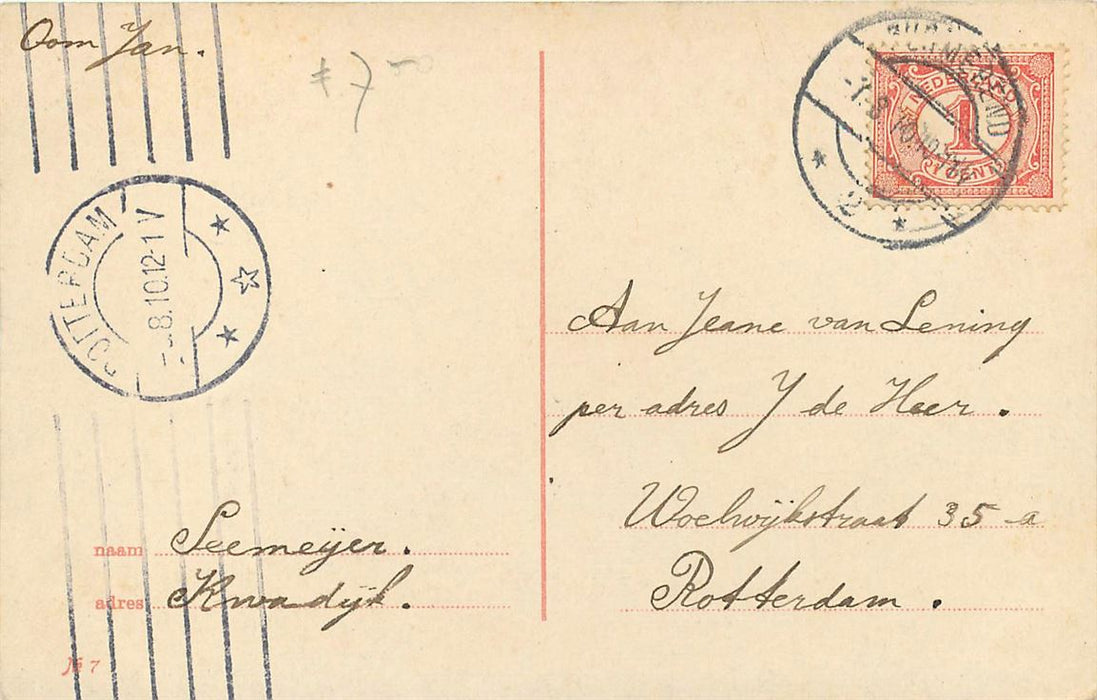 Oom Jan.
ƒ 7 00
PURMEREND
NEDERLAND
1
CENT
2
ROTTERDAM
8.10.12-1 V
Aan Jeane van Lening
per adres J de Heer.
Woelwijkstraat 35-a
Rotterdam.
naam Seemeijer.
adres Kwadijk.
№ 7